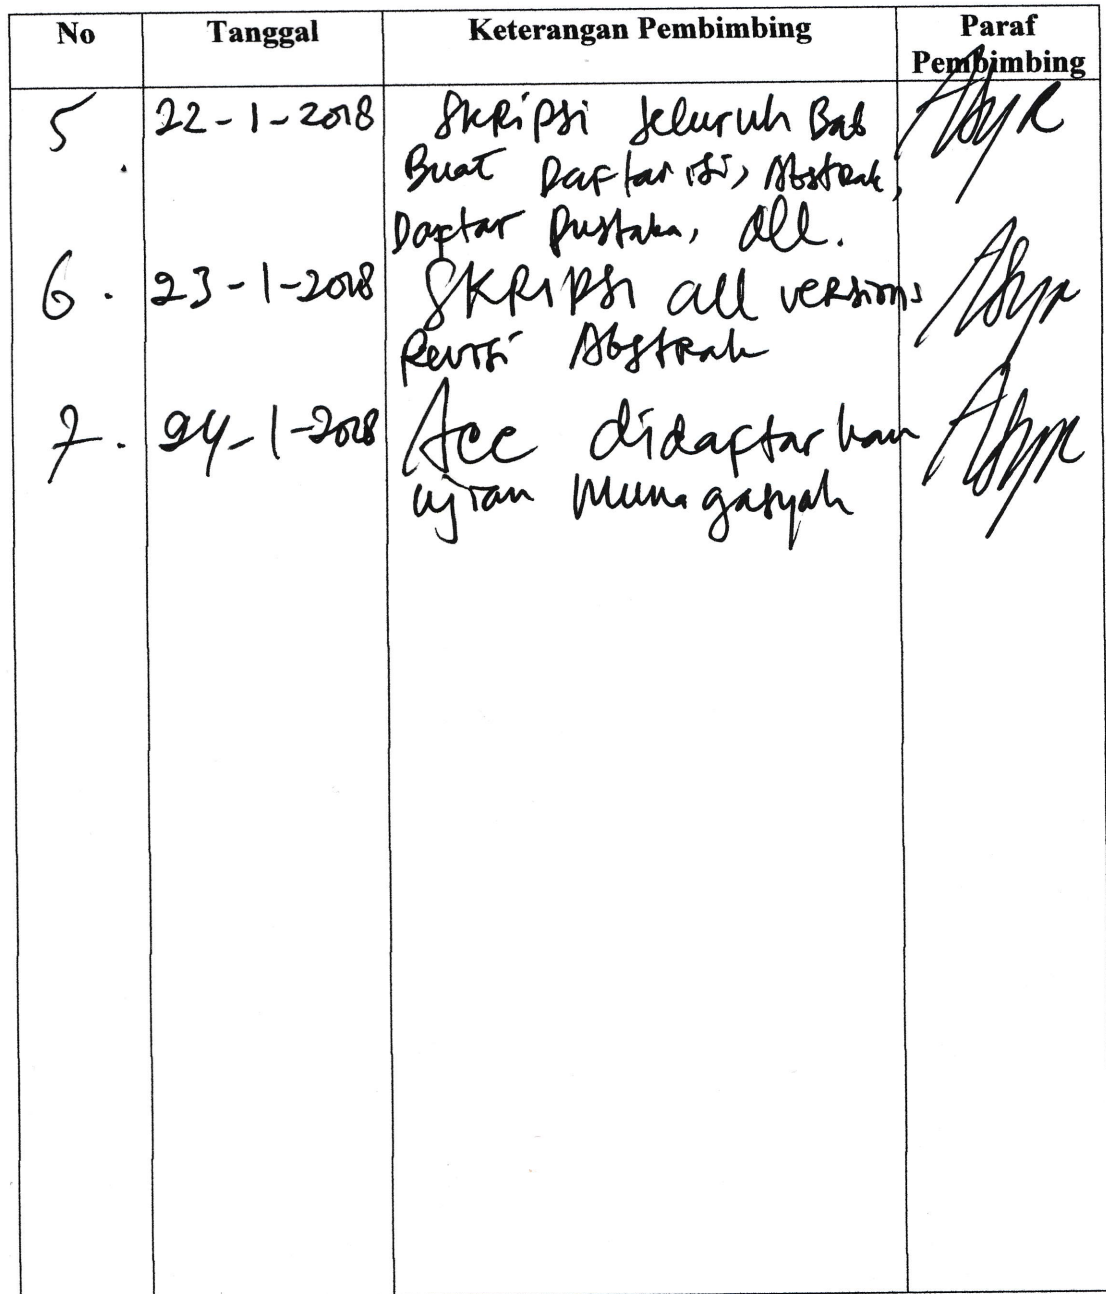 No Tanggal Keterangan Pembimbing Paraf Pembimbing
5. 22-1-2018 Skripsi seluruh Bab
Buat Daftar isi, Abstrak,
Daftar Pustaka, dll.
6. 23-1-2018 Skripsi all versions
Revisi Abstrak
7. 24-1-2018 Acc didaftarkan
ujian Munaqasyah